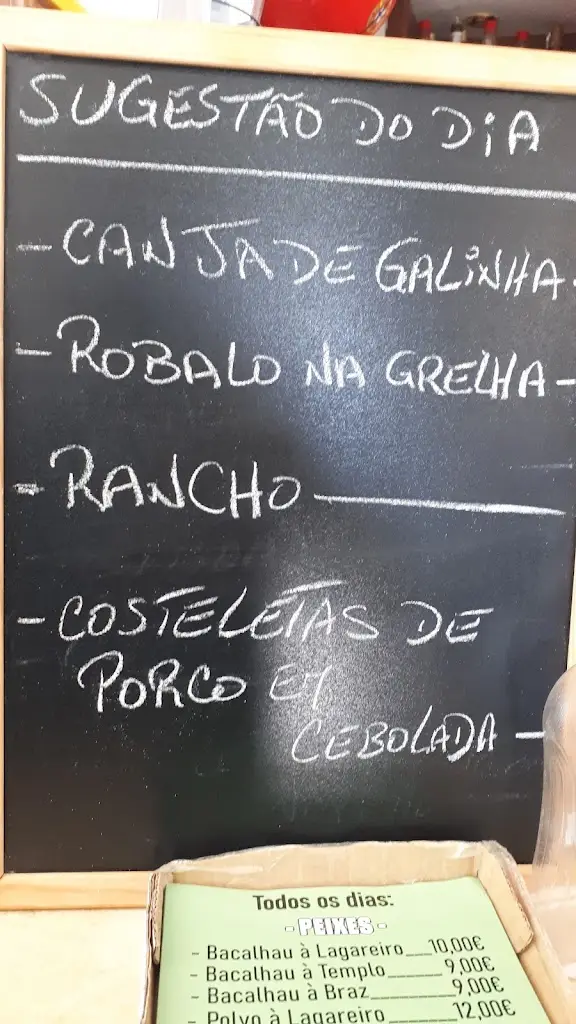 SUGESTÃO DO DiA
- CANJA DE GALiNHA.
- ROBALO NA GRELHA -
- RANCHO
- COSTELETAS DE
PORCO EM
CEBOLADA -
Todos os dias:
- PEIXES -
- Bacalhau à Lagareiro___10,00€
- Bacalhau à Templo______9,00€
- Bacalhau à Braz_________9,00€
- Polvo à Lagareiro______12,00€